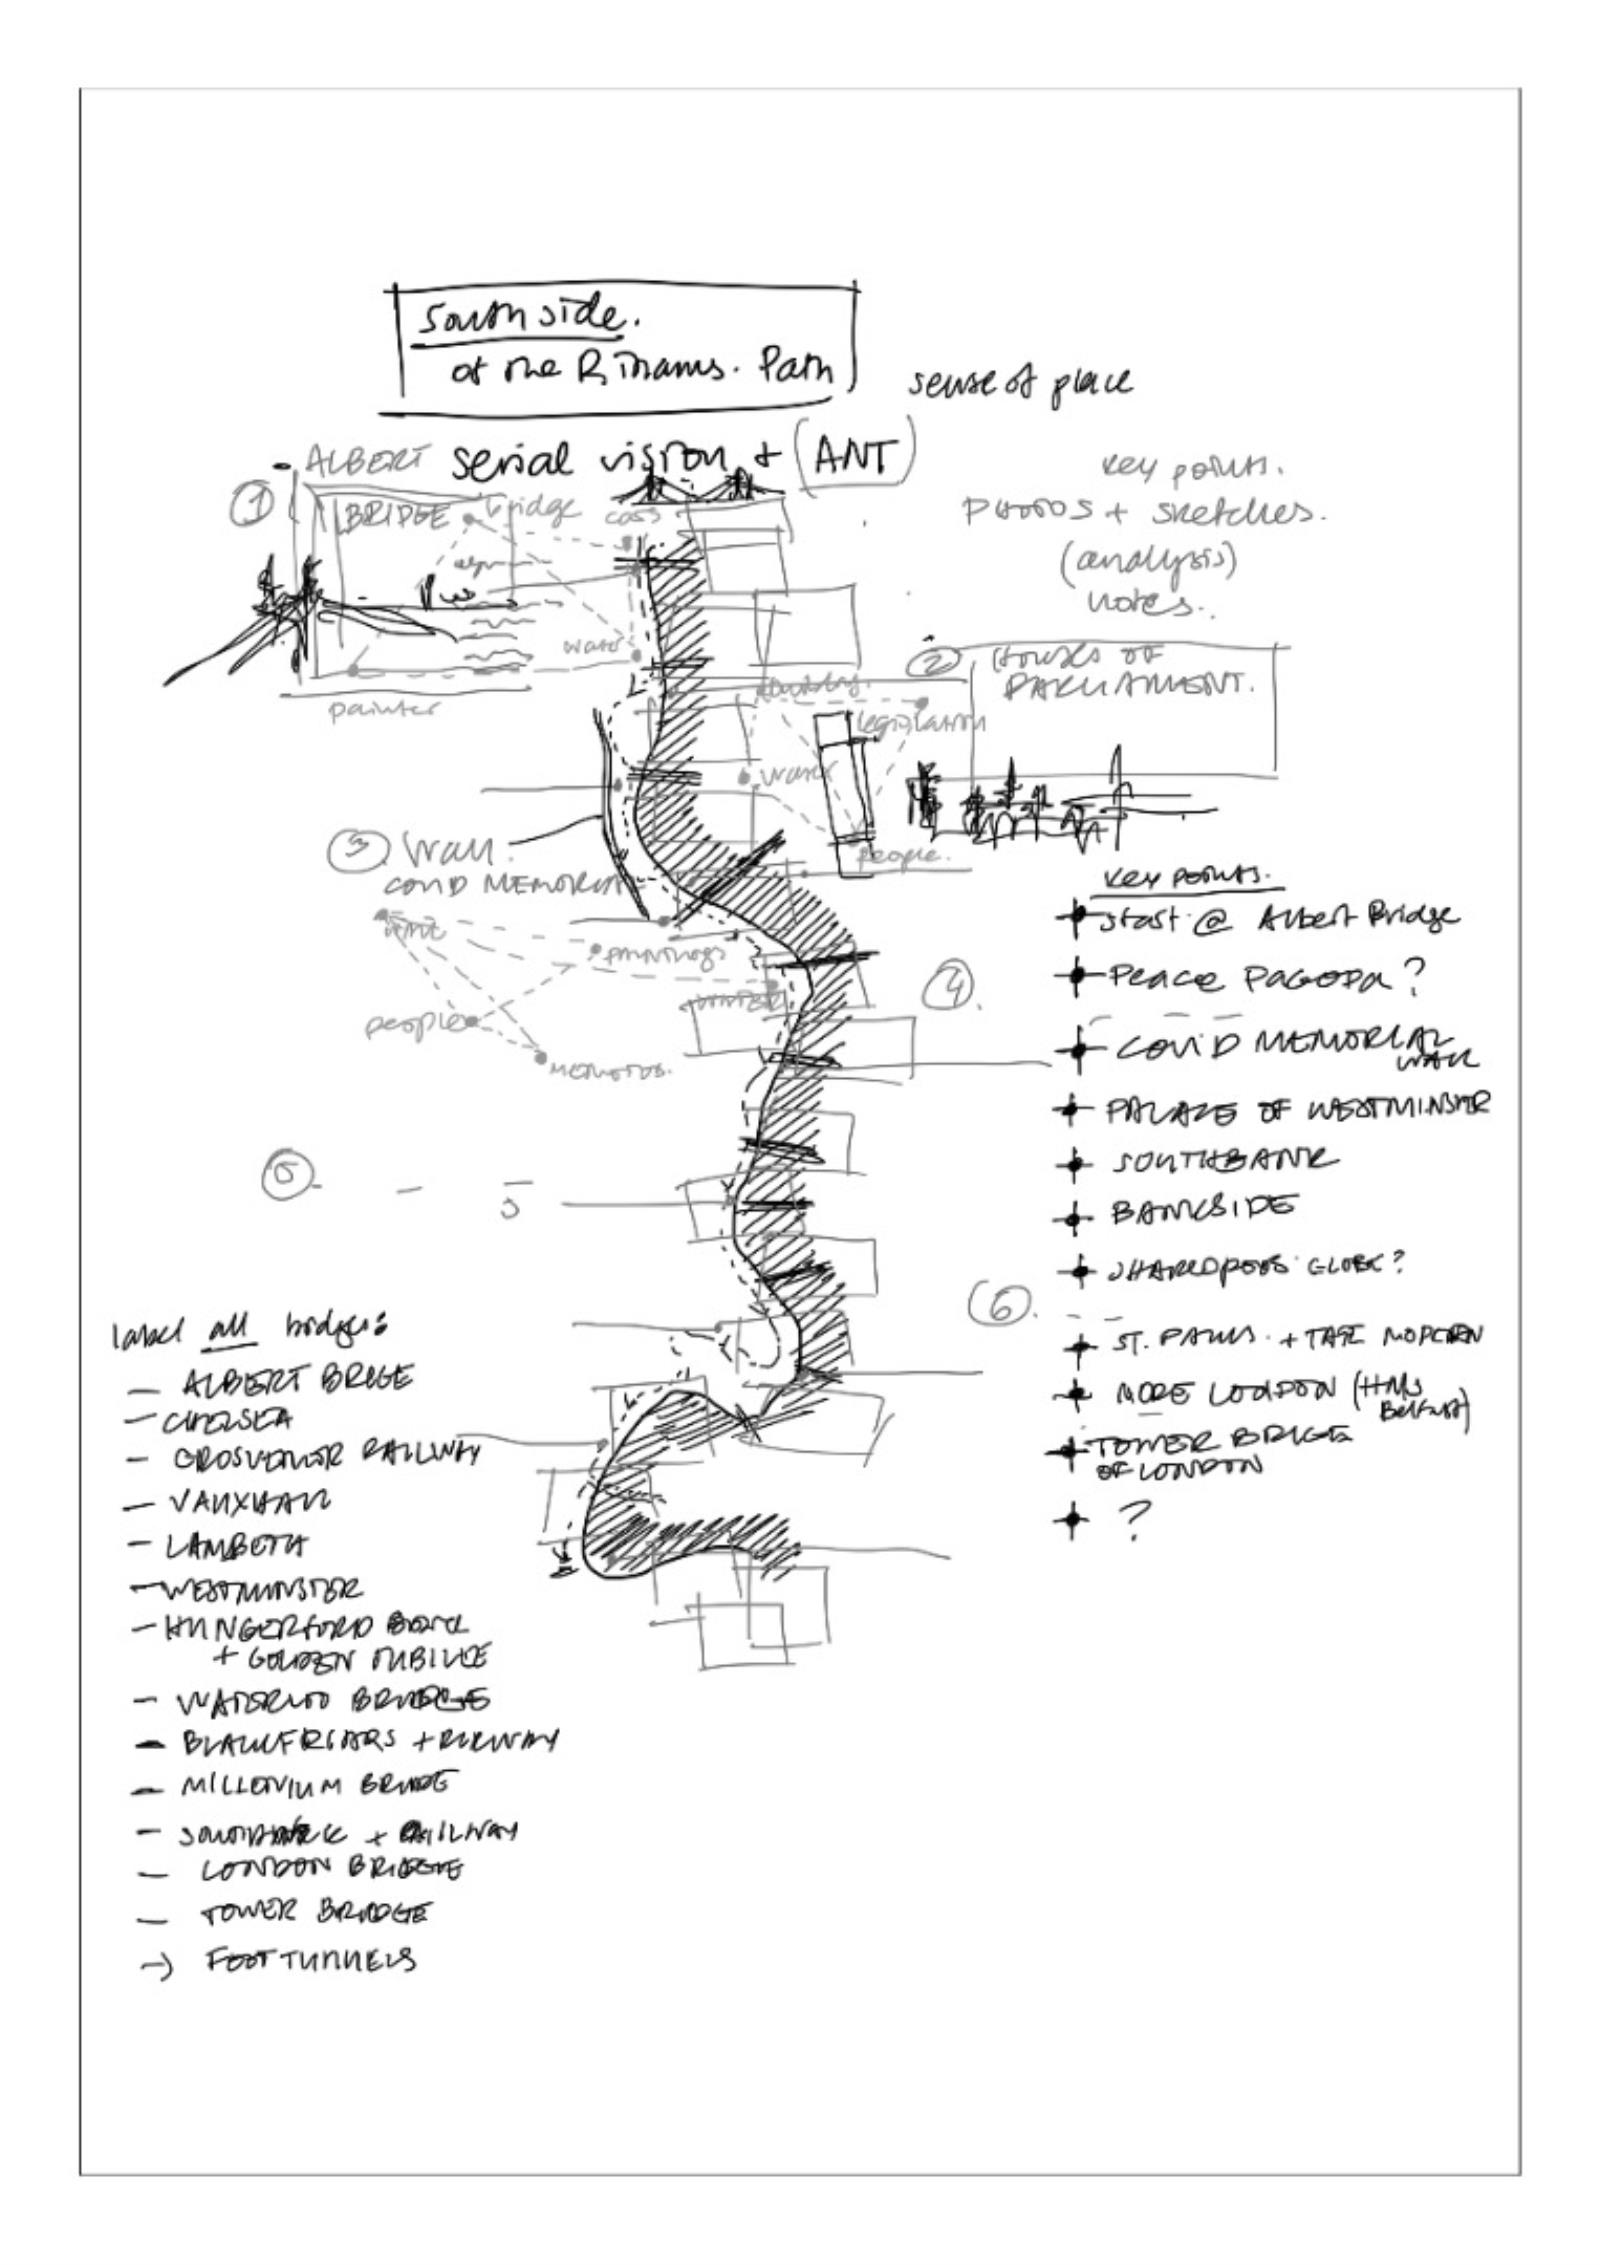 South side.
of the R. Thames. Path
sense of place
ALBERT serial vision + (ANT)
1 BRIDGE bridge cars
water
painter
key points.
PHOTOS + sketches.
(analysis)
notes..
2 HOUSES OF
PARLIAMENT.
legislation
water
people.
3 Wall.
COVID MEMORIAL
paintings
people
MEMORIES.
4.
5.
5
6.
key points.
start @ Albert Bridge
Peace PAGODA?
COVID MEMORIAL
WALL
PALACE OF WESTMINSTER
SOUTHBANK
BANKSIDE
GLOBE?
ST. PAULS. + TATE MODERN
MORE LONDON (HMS
Belfast)
TOWER BRIDGE
OF LONDON
?
label all bridges
- ALBERT BRIGE
- CHELSEA
- GROSVENOR RAILWAY
- VAUXHALL
- LAMBETH
- WESTMINSTER
- HUNGERFORD
+ GOLDEN JUBILEE
- WATERLOO BRIDGE
- BLACKFRIARS + RAILWAY
- MILLENIUM BRIDGE
- SOUTHWARK + RAILWAY
- LONDON BRIDGE
- TOWER BRIDGE
→ FOOT TUNNELS